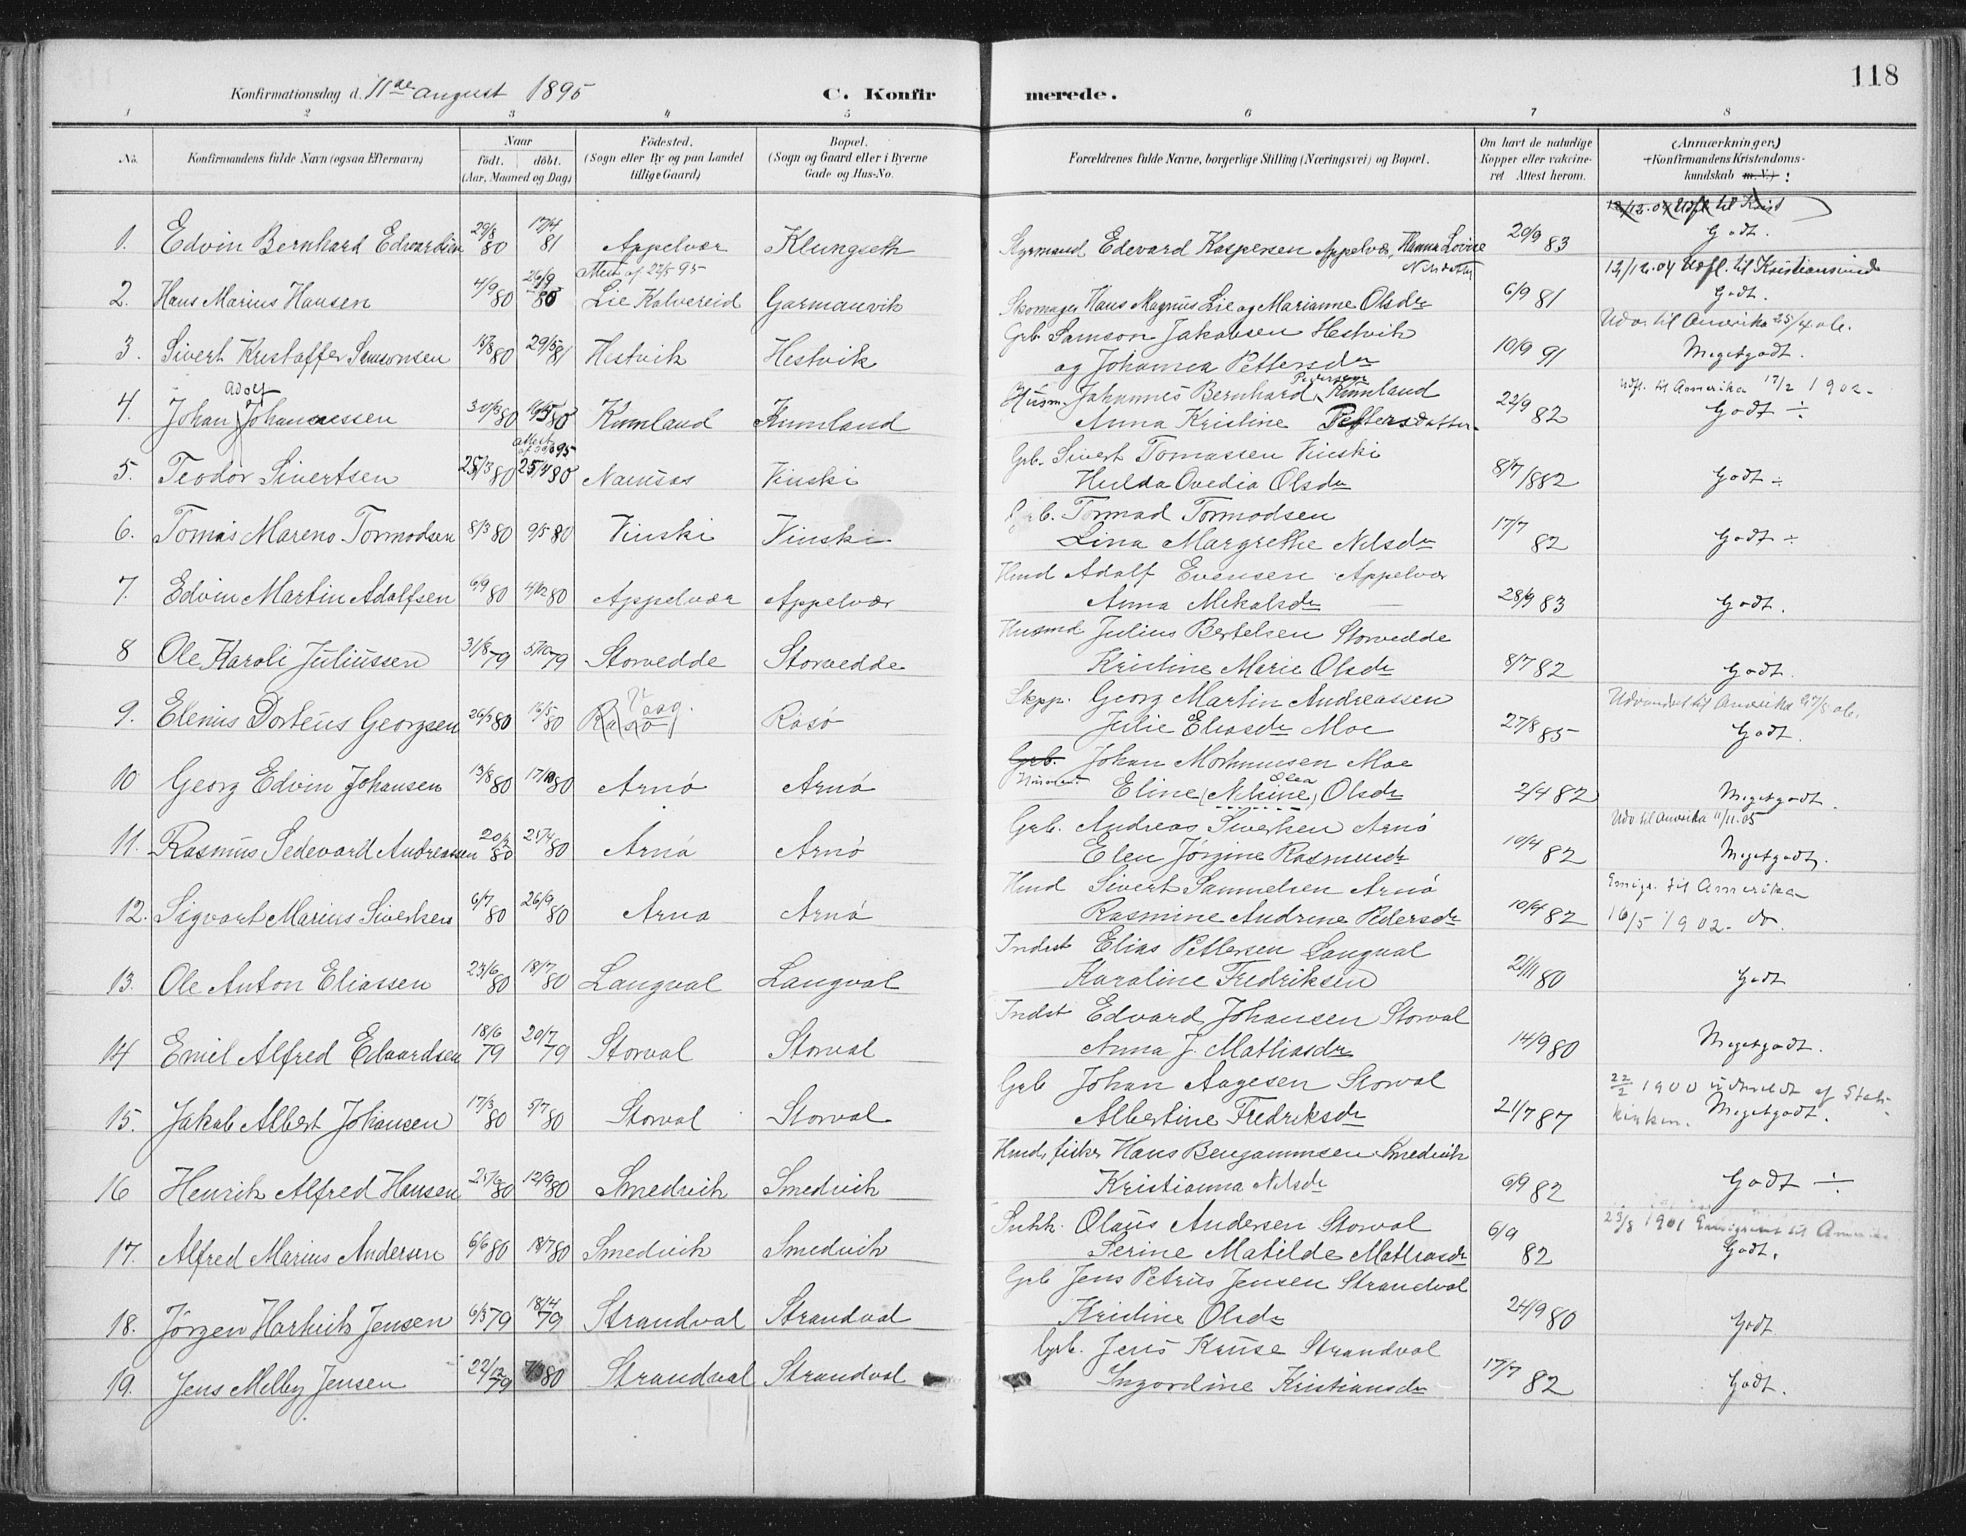 118
Konfirmationsdag d. 11te august 1895 C. Konfirmerede.
1 2 3 4 5 6 7 8
No. Konfirmandens fulde Navn (ogsaa Efternavn) Naar født. døbt. (Aar, Maaned og Dag) Fødested. (Sogn eller By og paa Landet tillige Gaard) Bopæl. (Sogn og Gaard eller i Byerne Gade og Hus-No. Forældrenes fulde Navne, borgerlige Stilling (Næringsvei) og Bopæl. Om havt de naturlige Kopper eller vakcineret Attest herom. (Anmærkninger.) Konfirmandens Kristendomskundskab m. V.) :
12/12.04 Udfl. til Krist
1. Edvin Bernhard Edvardsen 29/8 80 17/4 81 Appelvær Klungseth Styrmand Edevard Kaspersen Appelvær, Hanna Lovise Nilsdatter 20/9 83 Godt.
Attest af 22/5 95 12/12.04 Udfl. til Kristiansund
2. Hans Marius Hansen 4/9 80 26/9 80 Lie Kalvereid Garmanvik Skomager Hans Magnus Lie og Marianne Olsdr 6/9 81 Godt.
3. Sivert Kristoffer Samsonsen 80 29/5 81 Hestvik Hestvik Grb. Samson Jakobsen Hestvik Udv. til Amerika 25/4 06.
og Johanna Pettersdr 10/9 91 Meget godt.
4. Johan Adolf Johannessen 30/3 80 80 Kumland Kumland Husm. Johannes Bernhard Pedersen Kumland Udfl. til Amerika 17/2 1902.
Anna Kristine Pettersdatter 22/9 82 Godt ÷
5. Teodor Sivertsen 25/3 80 25/4 80 Namsos Vinski Grb. Sivert Tomassen Vinski
Hulda Ovedia Olsdr 8/7 1882 Godt ÷
6. Tomas Mareno Tormodsen 8/3 80 9/5 80 Vinski Vinski Grb. Tormod Tormodsen
Lina Margrethe Nilsdr 17/7 82 Godt ÷
7. Edvin Martin Adolfsen 6/9 80 80 Appelvær Appelvær Hmd Adolf Evensen Appelvær
Anna Mikalsdr 28/9 83 Godt.
8 Ole Karoli Juliussen 31/8 79 5/10 79 Storvedde Storvedde Husmd Julius Bertelsen Storvedde
Kristine Marie Olsdr 8/7 82 Godt.
9. Elenius Dorteus Georgsen 26/3 80 16/5 80 Rasø Rasø Skpp. Georg Martin Andreassen Udvandret til Amerika
Julie Eliasdr Moe 27/8 85 Godt.
10 Georg Edvin Johansen 13/8 80 17/10 80 Arnø Arnø Grb. Johan Mortensen Moe
Eline (Nikine) Olea Olsdr 2/4 82 Meget godt.
11. Rasmus Sedevard Andreassen 20/3 80 25/4 80 Arnø Arnø Grb. Andreas Sivertsen Arnø Udv til Amerika 11/11.05
Elen Jørgine Rasmusdr 10/4 82 Meget godt.
12. Sigvart Marius Sivertsen 6/7 80 26/9 80 Arnø Arnø Hmd Sivert Samuelsen Arnø Emigr. til Amerika
Rasmine Andrine Pedersdr 10/4 82 16/5 1902. do.
13. Ole Anton Eliassen 23/6 80 18/7 80 Langval Langval Indst Elias Pettersen Langval
Karoline Fredriksen 2/11 80 Godt
14 Emil Alfred Edvardsen 18/6 79 20/7 79 Storval Storval Indst Edvard Johansen Storval
Anna J. Mathiasdr 14/9 80 Meget godt.
15. Jakob Albert Johansen 17/3 80 5/7 80 Storval Storval Grb Johan Aagesen Storval 22/2 1900 udmeldt af Statskirken.
Albertine Fredriksdr 21/7 87 Meget godt.
16 Henrik Alfred Hansen 80 12/9 80 Smedvik Smedvik Hmd, fisker Hans Bengaminsen Smedvik
Kristianna Nilsdr 6/9 82 Godt ÷
17. Alfred Marius Andersen 6/6 80 18/7 80 Smedvik Smedvik Olaus Andersen Storval 23/8 1901 Emigreret til Amerika
Serine Matilde Mathiasdr 6/9 82 Godt.
18. Jørgen Hartvik Jensen 6/3 79 18/4 79 Strandval Strandval Grb Jens Petrus Jensen Strandval
Kristine Olsdr 24/9 80 Godt
19. Jens Melby Jensen 22/12 79 80 Strandval Strandval Grb. Jens Kruse Strandval
Ingordine Kristiansdr 17/7 82 Godt.